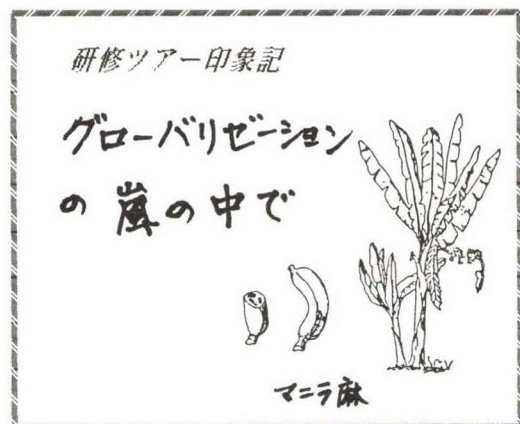 研修ツアー印象記
グローバリゼーション
の嵐の中で
マニラ麻